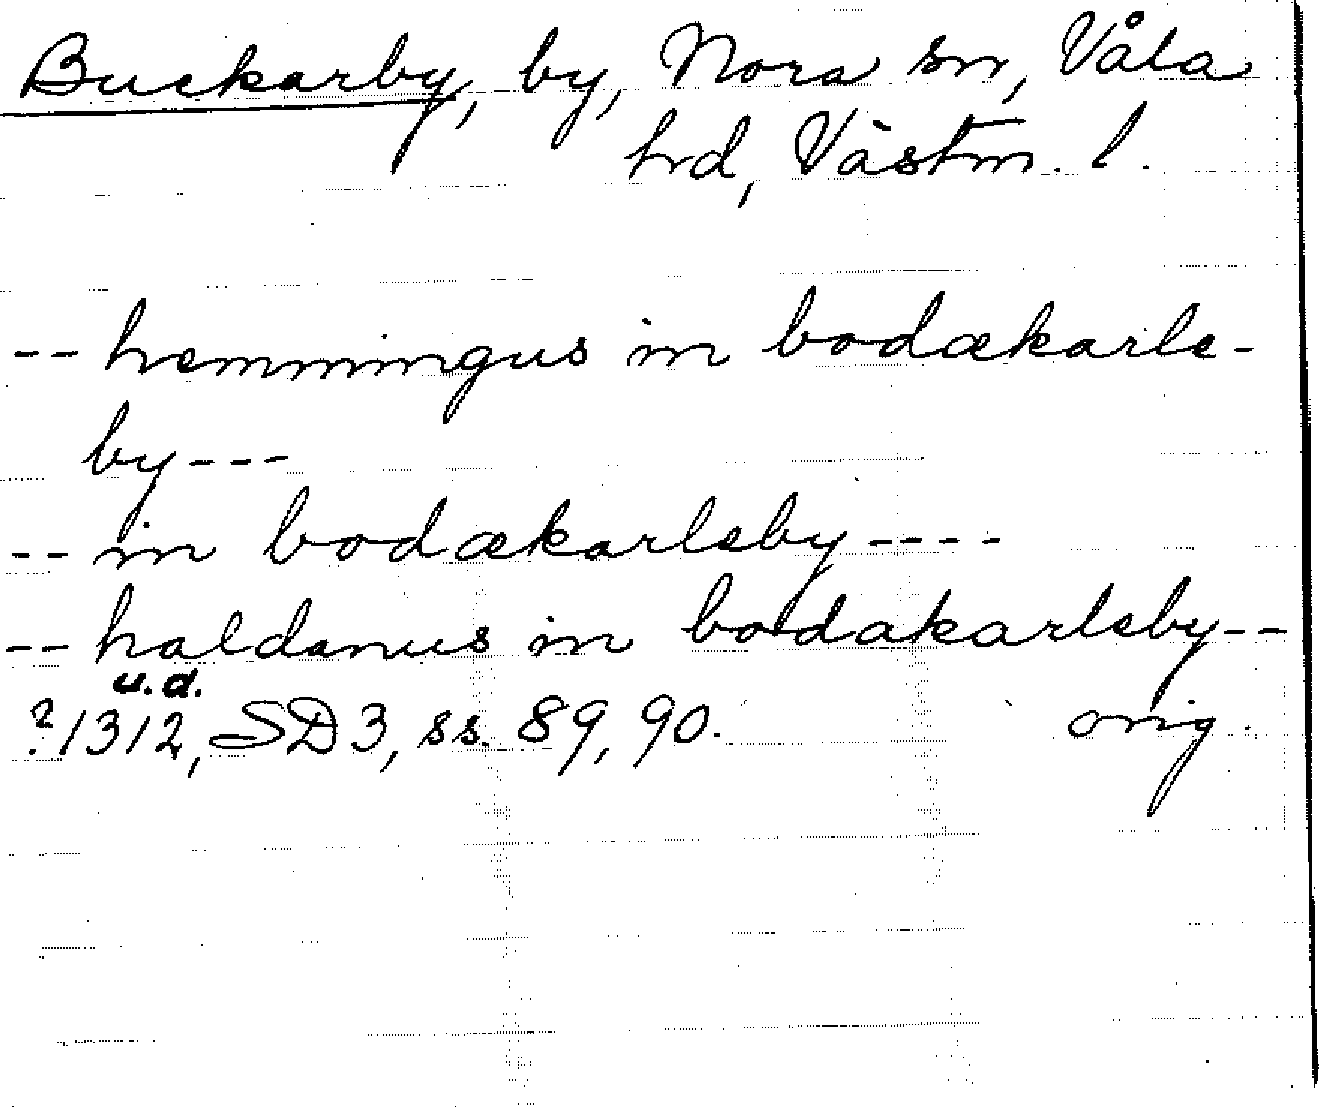 Buckarby, by, Nora sn, Våla
hrd, Västm. l.
-- hemmingus in bodækarle-
by ---
-- in bodækarlsby ----
-- haldanus in bodakarlsby --
u.d.
?1312, SD 3, ss. 89, 90. orig.